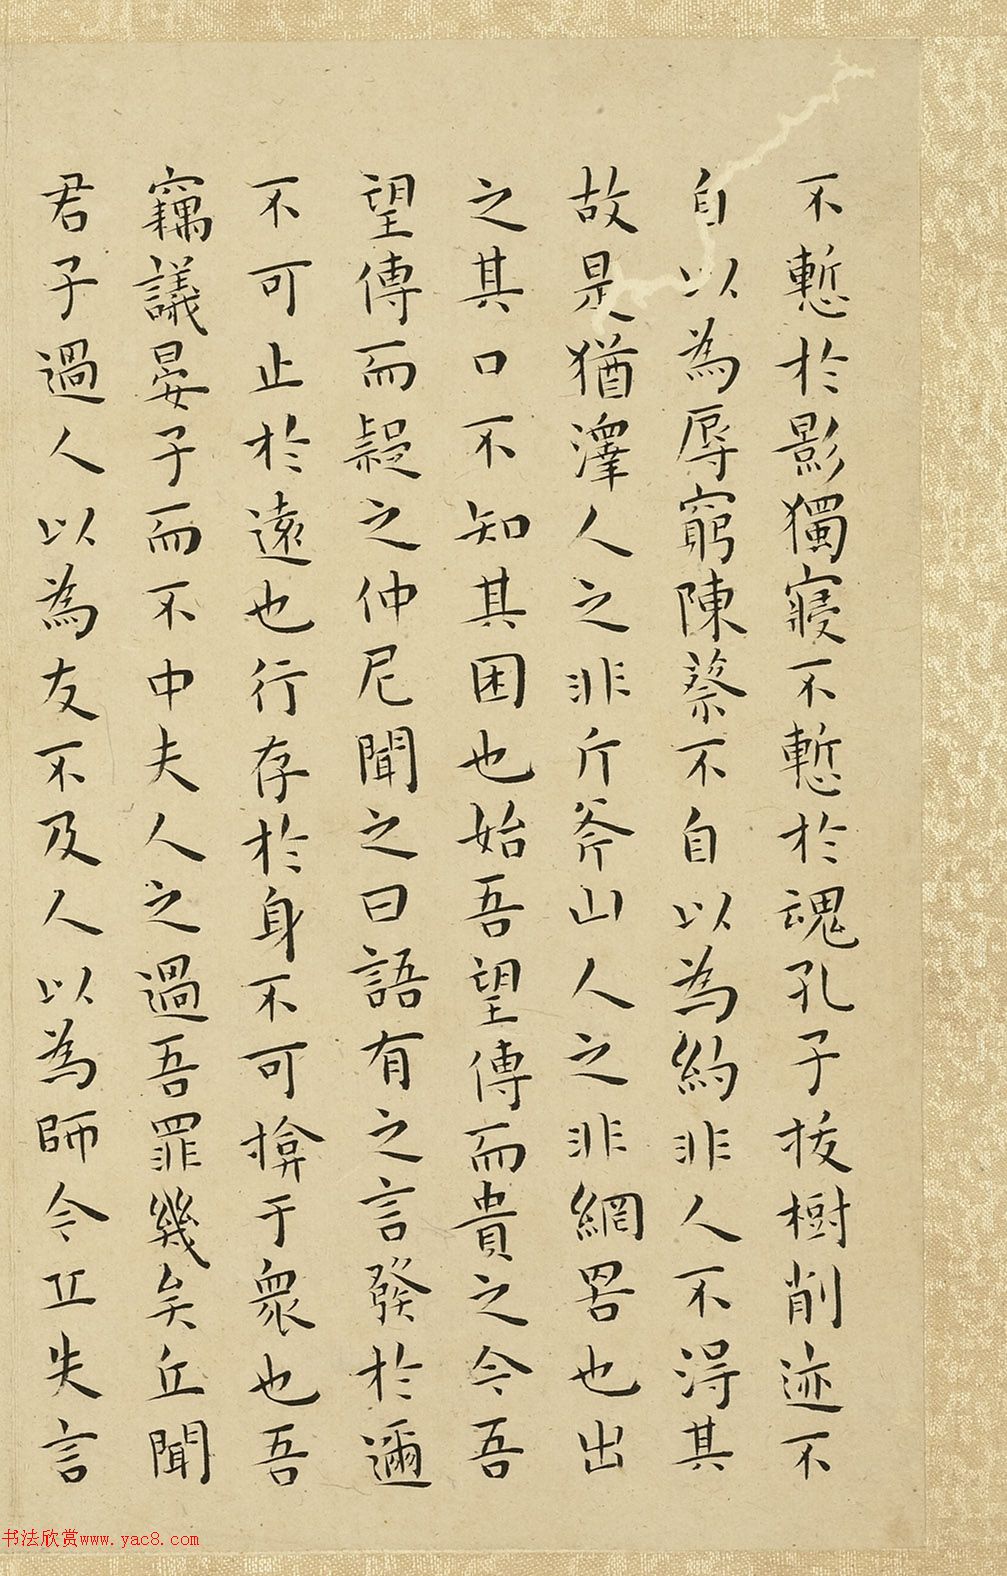 不慙於影獨寢不慙於魂孔子拔樹削迹不
自以為辱窮陳蔡不自以為約非人不得其
故是猶澤人之非斤斧山人之非網罟也出
之其口不知其困也始吾望傳而貴之今吾
望傳而疑之仲尼聞之曰語有之言發於邇
不可止於遠也行存於身不可揜于衆也吾
竊議晏子而不中夫人之過吾罪幾矣丘聞
君子過人以為友不及人以為師今丘失言
书法欣赏www.yac8.com